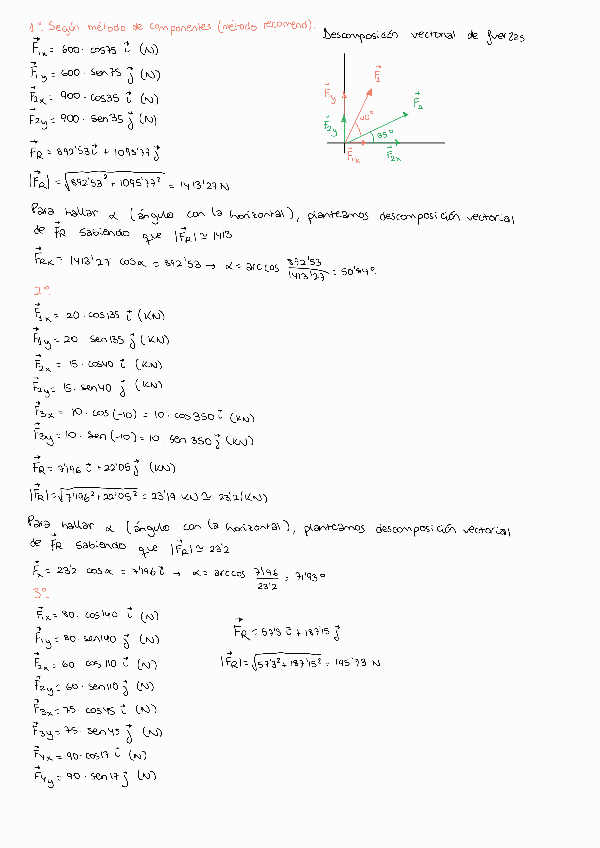 1º. Según método de componentes (método recomend).
Descomposición vectorial de fuerzas
F₁ₓ = 600 · cos75 i (N)
F₁y = 600 · sen75 j (N)
F₂ₓ = 900 · cos35 i (N)
F₂y = 900 · sen35 j (N)
Fy
F₁
F₂
F₂y
40°
35°
F₁ₓ
F₂ₓ
F_R = 892'53 i + 1095'77 j
|F_R| = √892'53² + 1095'77² = 1413'27 N
Para hallar α (ángulo con la horizontal), planteamos descomposición vectorial
de F_R sabiendo que |F_R| ≃ 1413
F_Rx = 1413'27 cosα = 892'53 → α = arccos 892'53/1413'27 = 50'84°.
2º.
F₁ₓ = 20 · cos135 i (KN)
F₁y = 20 sen135 j (KN)
F₂ₓ = 15 · cos40 i (KN)
F₂y = 15 · sen40 j (KN)
F₃ₓ = 10 · cos(-10) = 10 · cos350 i (KN)
F₃y = 10 · sen(-10) = 10 sen 350 j (KN)
F_R = 7'196 i + 22'05 j (KN)
|F_R| = √7'196² + 22'05² = 23'19 KN ≃ 23'2 (KN)
Para hallar α (ángulo con la horizontal), planteamos descomposición vectorial
de F_R sabiendo que |F_R| ≃ 23'2
Fₓ = 23'2 cosα = 7'196 i → α = arccos 7'196/23'2 = 71'93°
3º.
F₁ₓ = 80 · cos140 i (N)
F₁y = 80 · sen140 j (N)
F₂ₓ = 60 cos110 i (N)
F₂y = 60 · sen110 j (N)
F₃ₓ = 75 · cos45 i (N)
F₃y = 75 · sen45 j (N)
F₄ₓ = 90 · cos17 i (N)
F₄y = 90 · sen17 j (N)
F_R = 57'3 i + 187'15 j
|F_R| = √57'3² + 187'15² = 195'73 N